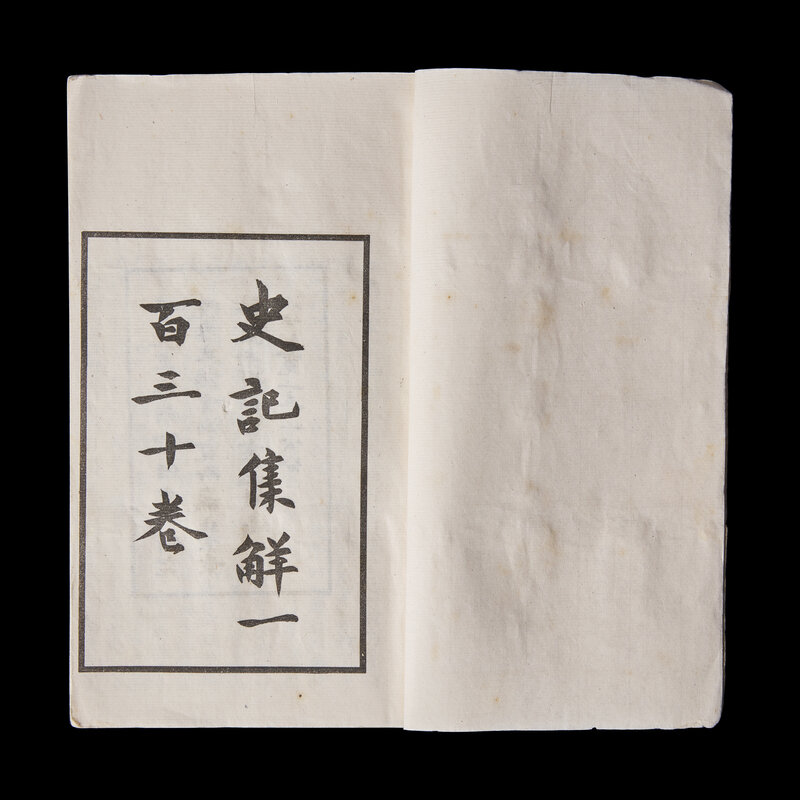 史記集解一
百三十卷